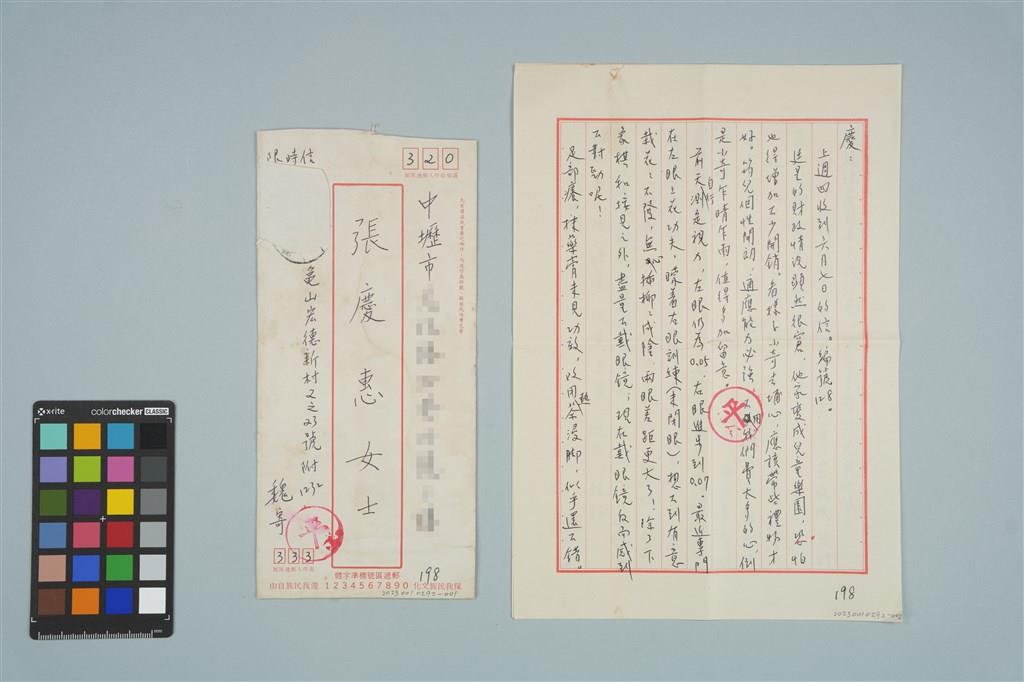 限時信
320
中壢市
張慶惠女士
龜山宏德新村又之23號附1232
魏寄
平
333
郵遞區號標準字體
1234567890
198
20230010292-001
慶：
上週四收到六月七日的信。編號128。
逵是的財政情況顯然很窘，他家變成兒童樂園，恐怕
也得增加不少開銷。看樣上小奇去埔心，應該帶些禮物才
好。筠兒個性開朗，適應能力必強，不用我們費太多的心，倒
是小奇乍晴乍雨，值得多加留意。
前天自行測定視力，左眼仍為0.05，右眼進步到0.07。最近專門
在左眼上花功夫，矇著右眼訓練（束閉眼），想不到有意
栽花花不發，無心插柳柳成陰，兩眼差距更大了！除了下
象棋和接見之外，盡量不戴眼鏡；現在戴眼鏡反而感到
不對勁呢！
足部癢，抹藥膏未見功效，改用熱茶浸腳，似乎還不錯。
平
198
20230010292-002
x-rite
colorchecker CLASSIC